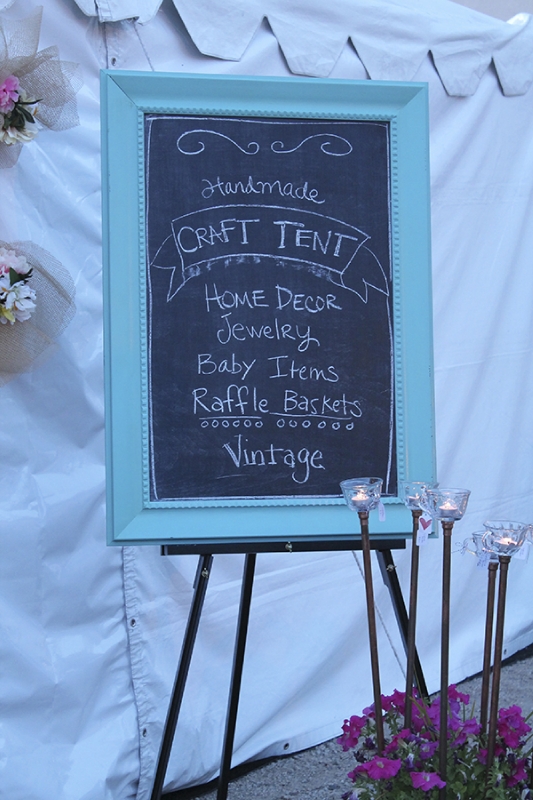 Handmade
CRAFT TENT
HOME DECOR
Jewelry
Baby Items
Raffle Baskets
Vintage